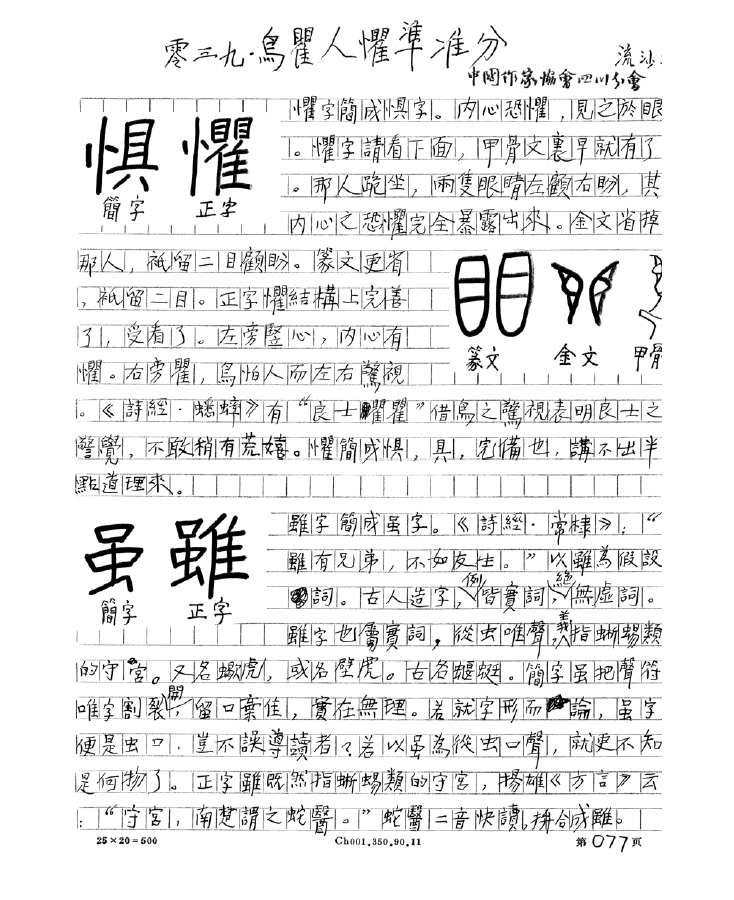 零三九·鳥瞿人懼準准分
流沙
中國作家協會四川分會
惧 懼
簡字 正字
懼字簡成惧字。内心恐懼,見之於眼
。懼字請看下面,甲骨文裏早就有了
。那人跪坐,兩隻眼睛左顧右盼,其
内心之恐懼完全暴露出來。金文省掉
那人,祇留二目顧盼。篆文更省
,祇留二目。正字懼結構上完善
了,受看了。左旁豎心,内心有
懼。右旁瞿,鳥怕人而左右驚視
篆文 金文 甲骨
。《詩經·蟋蟀》有“良士瞿瞿”借鳥之驚視表明良士之
警覺,不敢稍有荒嬉。懼簡成惧,具,完備也,講不出半
點道理來。
虽 雖
簡字 正字
雖字簡成虽字。《詩經·常棣》:“
雖有兄弟,不如友生。”以雖為假設
詞。古人造字,例皆實詞,絕無虛詞。
雖字也屬實詞,從虫唯聲,義指蜥蜴類
的守宮。又名蠍虎,或名壁虎。古名蝘蜓。簡字虽把聲符
唯字割裂開,留口棄隹,實在無理。若就字形而論,虽字
便是虫口,豈不誤導讀者?若以虽為從虫口聲,就更不知
是何物了。正字雖既然指蜥蜴類的守宮,揚雄《方言》云
:“守宮,南楚謂之蛇醫。”蛇醫二音快讀,拼合成雖。
25×20=500
Ch001.350.90.11
第077页